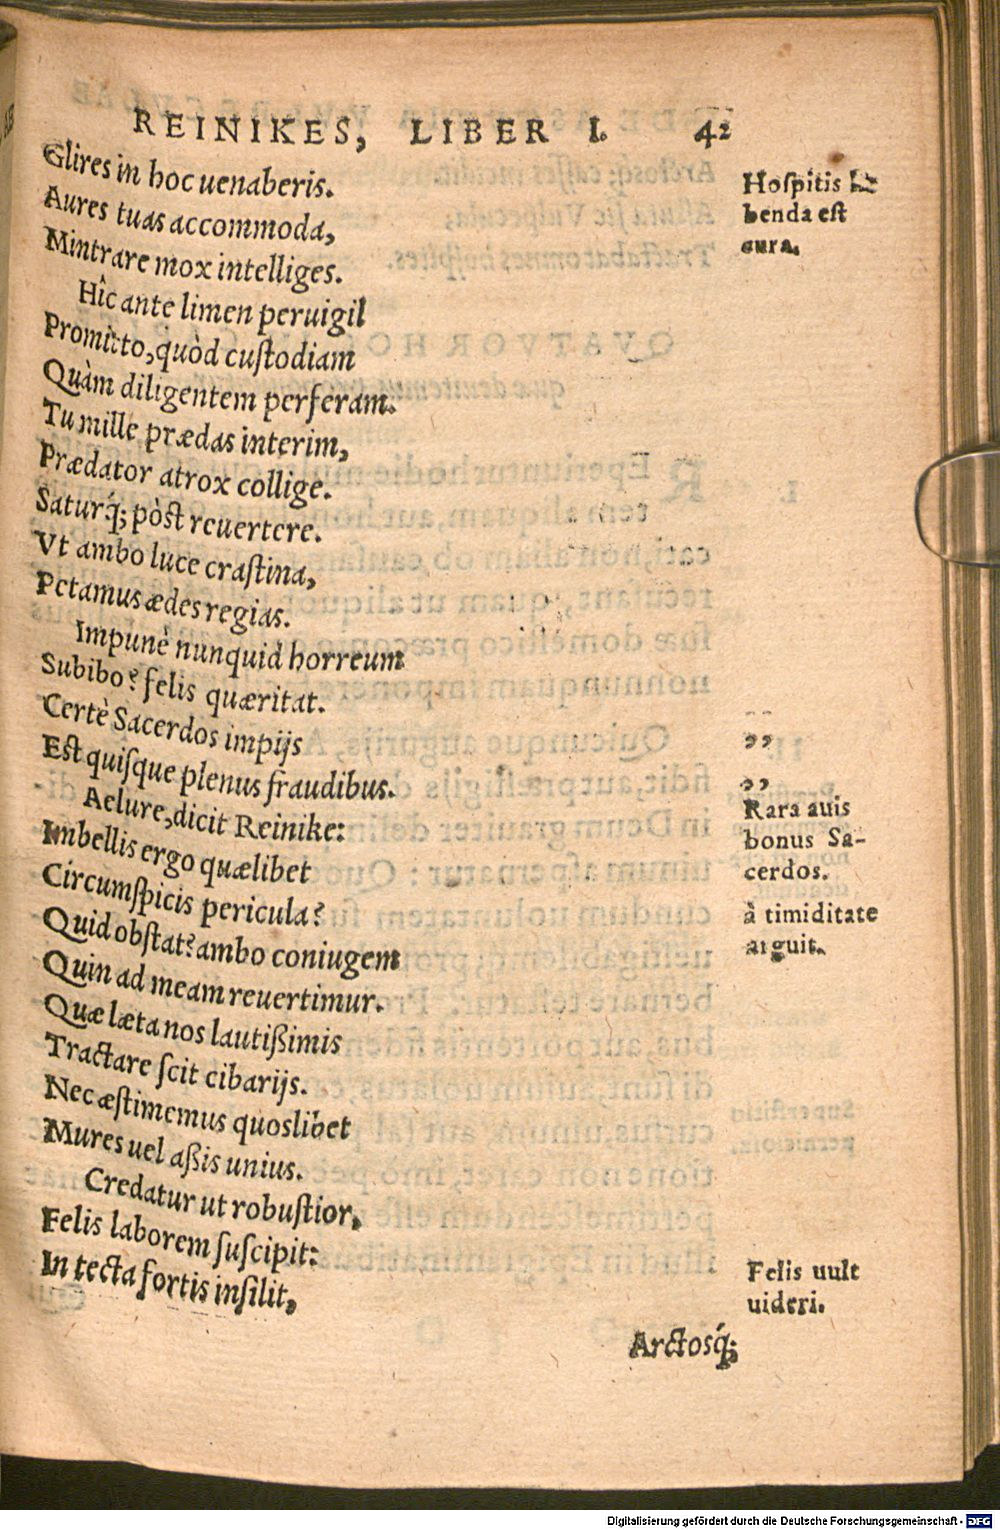 REINIKES, LIBER I. 42
Glires in hoc uenaberis.
Aures tuas accommoda,
Mintrare mox intelliges.
Hîc ante limen peruigil
Promitto, quòd cuſtodiam
Quàm diligentem perferam.
Tu mille prædas interim,
Prædator atrox collige.
Saturq́; pòſt reuertere.
Vt ambo luce craſtina,
Petamus ædes regias.
Impunè nunquid horreum
Subibo? felis quæritat.
Certè Sacerdos impijs
Eſt quiſque plenus fraudibus.
Aelure, dicit Reinike:
Imbellis ergo quælibet
Circumſpicis pericula?
Quid obſtat? ambo coniugem
Quin ad meam reuertimur.
Quæ læta nos lautißimis
Tractare ſcit cibarijs.
Nec æſtimemus quoslibet
Mures uel aßis unius.
Credatur ut robuſtior,
Felis laborem ſuſcipit:
In tecta fortis inſilit,
Arctosq́;
Hoſpitis
benda eſt
cura.
„
„
Rara auis
bonus Sa-
cerdos.
à timiditate
arguit.
Felis uult
uideri.
Digitalisierung gefördert durch die Deutsche Forschungsgemeinschaft - DFG